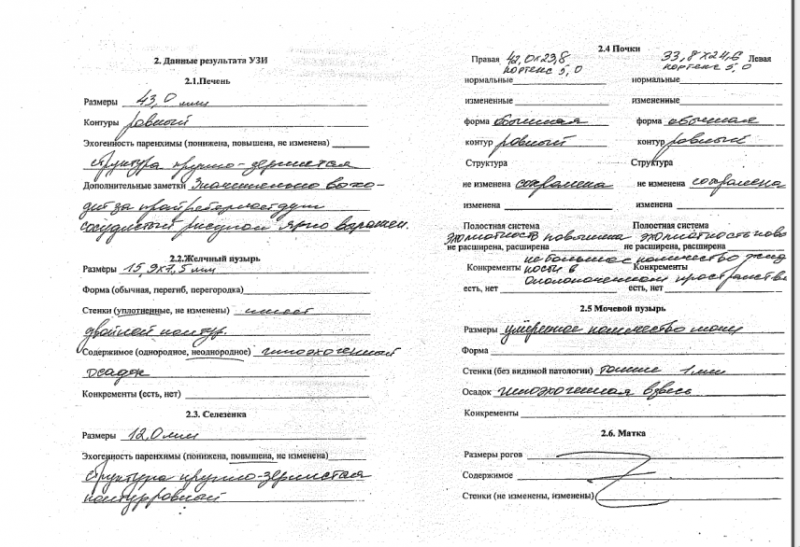 2. Данные результата УЗИ
2.1.Печень
Размеры 43,0 мм
Контуры ровный
Эхогенность паренхимы (понижена, повышена, не изменена)
структура крупно-зернистая
Дополнительные заметки Значительно выхо-
дит за
сосудистый рисунок ярко выражен.
2.2.Желчный пузырь
Размеры 15,9х7,5 мм
Форма (обычная, перегиб, перегородка)
Стенки (уплотненные, не изменены) имеет
двойной контур.
Содержимое (однородное, неоднородное) гипоэхогенный
осадок
Конкременты (есть, нет)
2.3. Селезенка
Размеры 12,0 мм
Эхогенность паренхимы (понижена, повышена, не изменена)
структура крупно-зернистая
контур ровный
2.4 Почки
Правая 42,0х23,8 33,8х24,6 Левая
кортекс 5,0 кортекс 5,0
нормальные нормальные
измененные измененные
форма обычная форма обычная
контур ровный контур ровный
Структура Структура
не изменена сохранена не изменена сохранена
изменена изменена
Полостная система Полостная система
повышена
не расширена, расширена не расширена, расширена
небольшое количество жид
Конкременты кости в Конкременты
околопочечном пространстве
есть, нет есть, нет
2.5 Мочевой пузырь
Размеры умеренное количество мочи
Форма
Стенки (без видимой патологии) тонкие 1мм
Осадок гипоэхогенная взвесь
Конкременты
2.6. Матка
Размеры рогов
Содержимое
Стенки (не изменены, изменены)